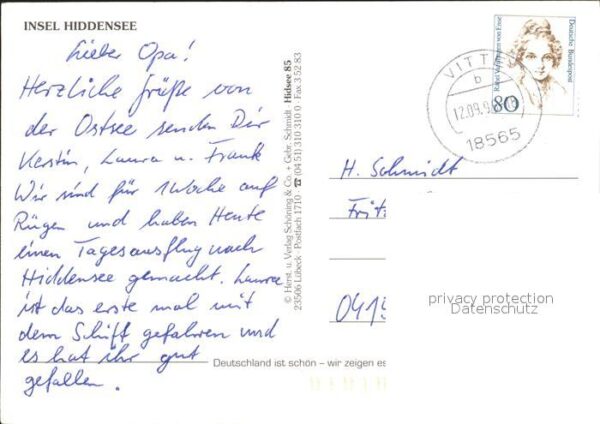 INSEL HIDDENSEE
Lieber Opa!
Herzliche Grüße von
der Ostsee senden Dir
Kerstin, Laura u. Frank
Wir sind für 1 Woche auf
Rügen und haben Heute
einen Tagesausflug nach
Hiddensee gemacht. Laura
ist das erste mal mit
dem Schiff gefahren und
es hat ihr gut
gefallen.
© Herst. u. Verlag Schöning & Co. + Gebr. Schmidt · Hidsee 85
23506 Lübeck · Postfach 1710 · ☎ (04 51) 310 310 0 · Fax 3 52 83
Deutschland ist schön – wir zeigen es
Deutsche Bundespost
80
VITTE
b
12.09.9
18565
H. Schmidt
Fritz
041
privacy protection
Datenschutz